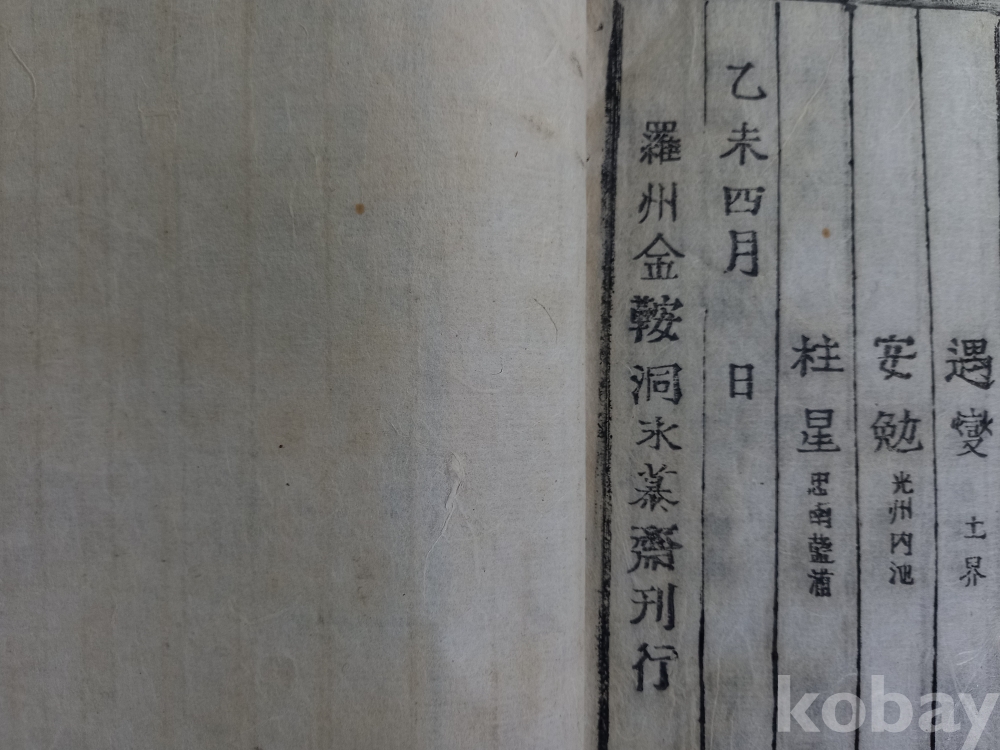 遇燮 土界
安勉 光州内池
柱星 忠南藍浦
乙未四月 日
羅州金鞍洞永慕齋刊行
kobay